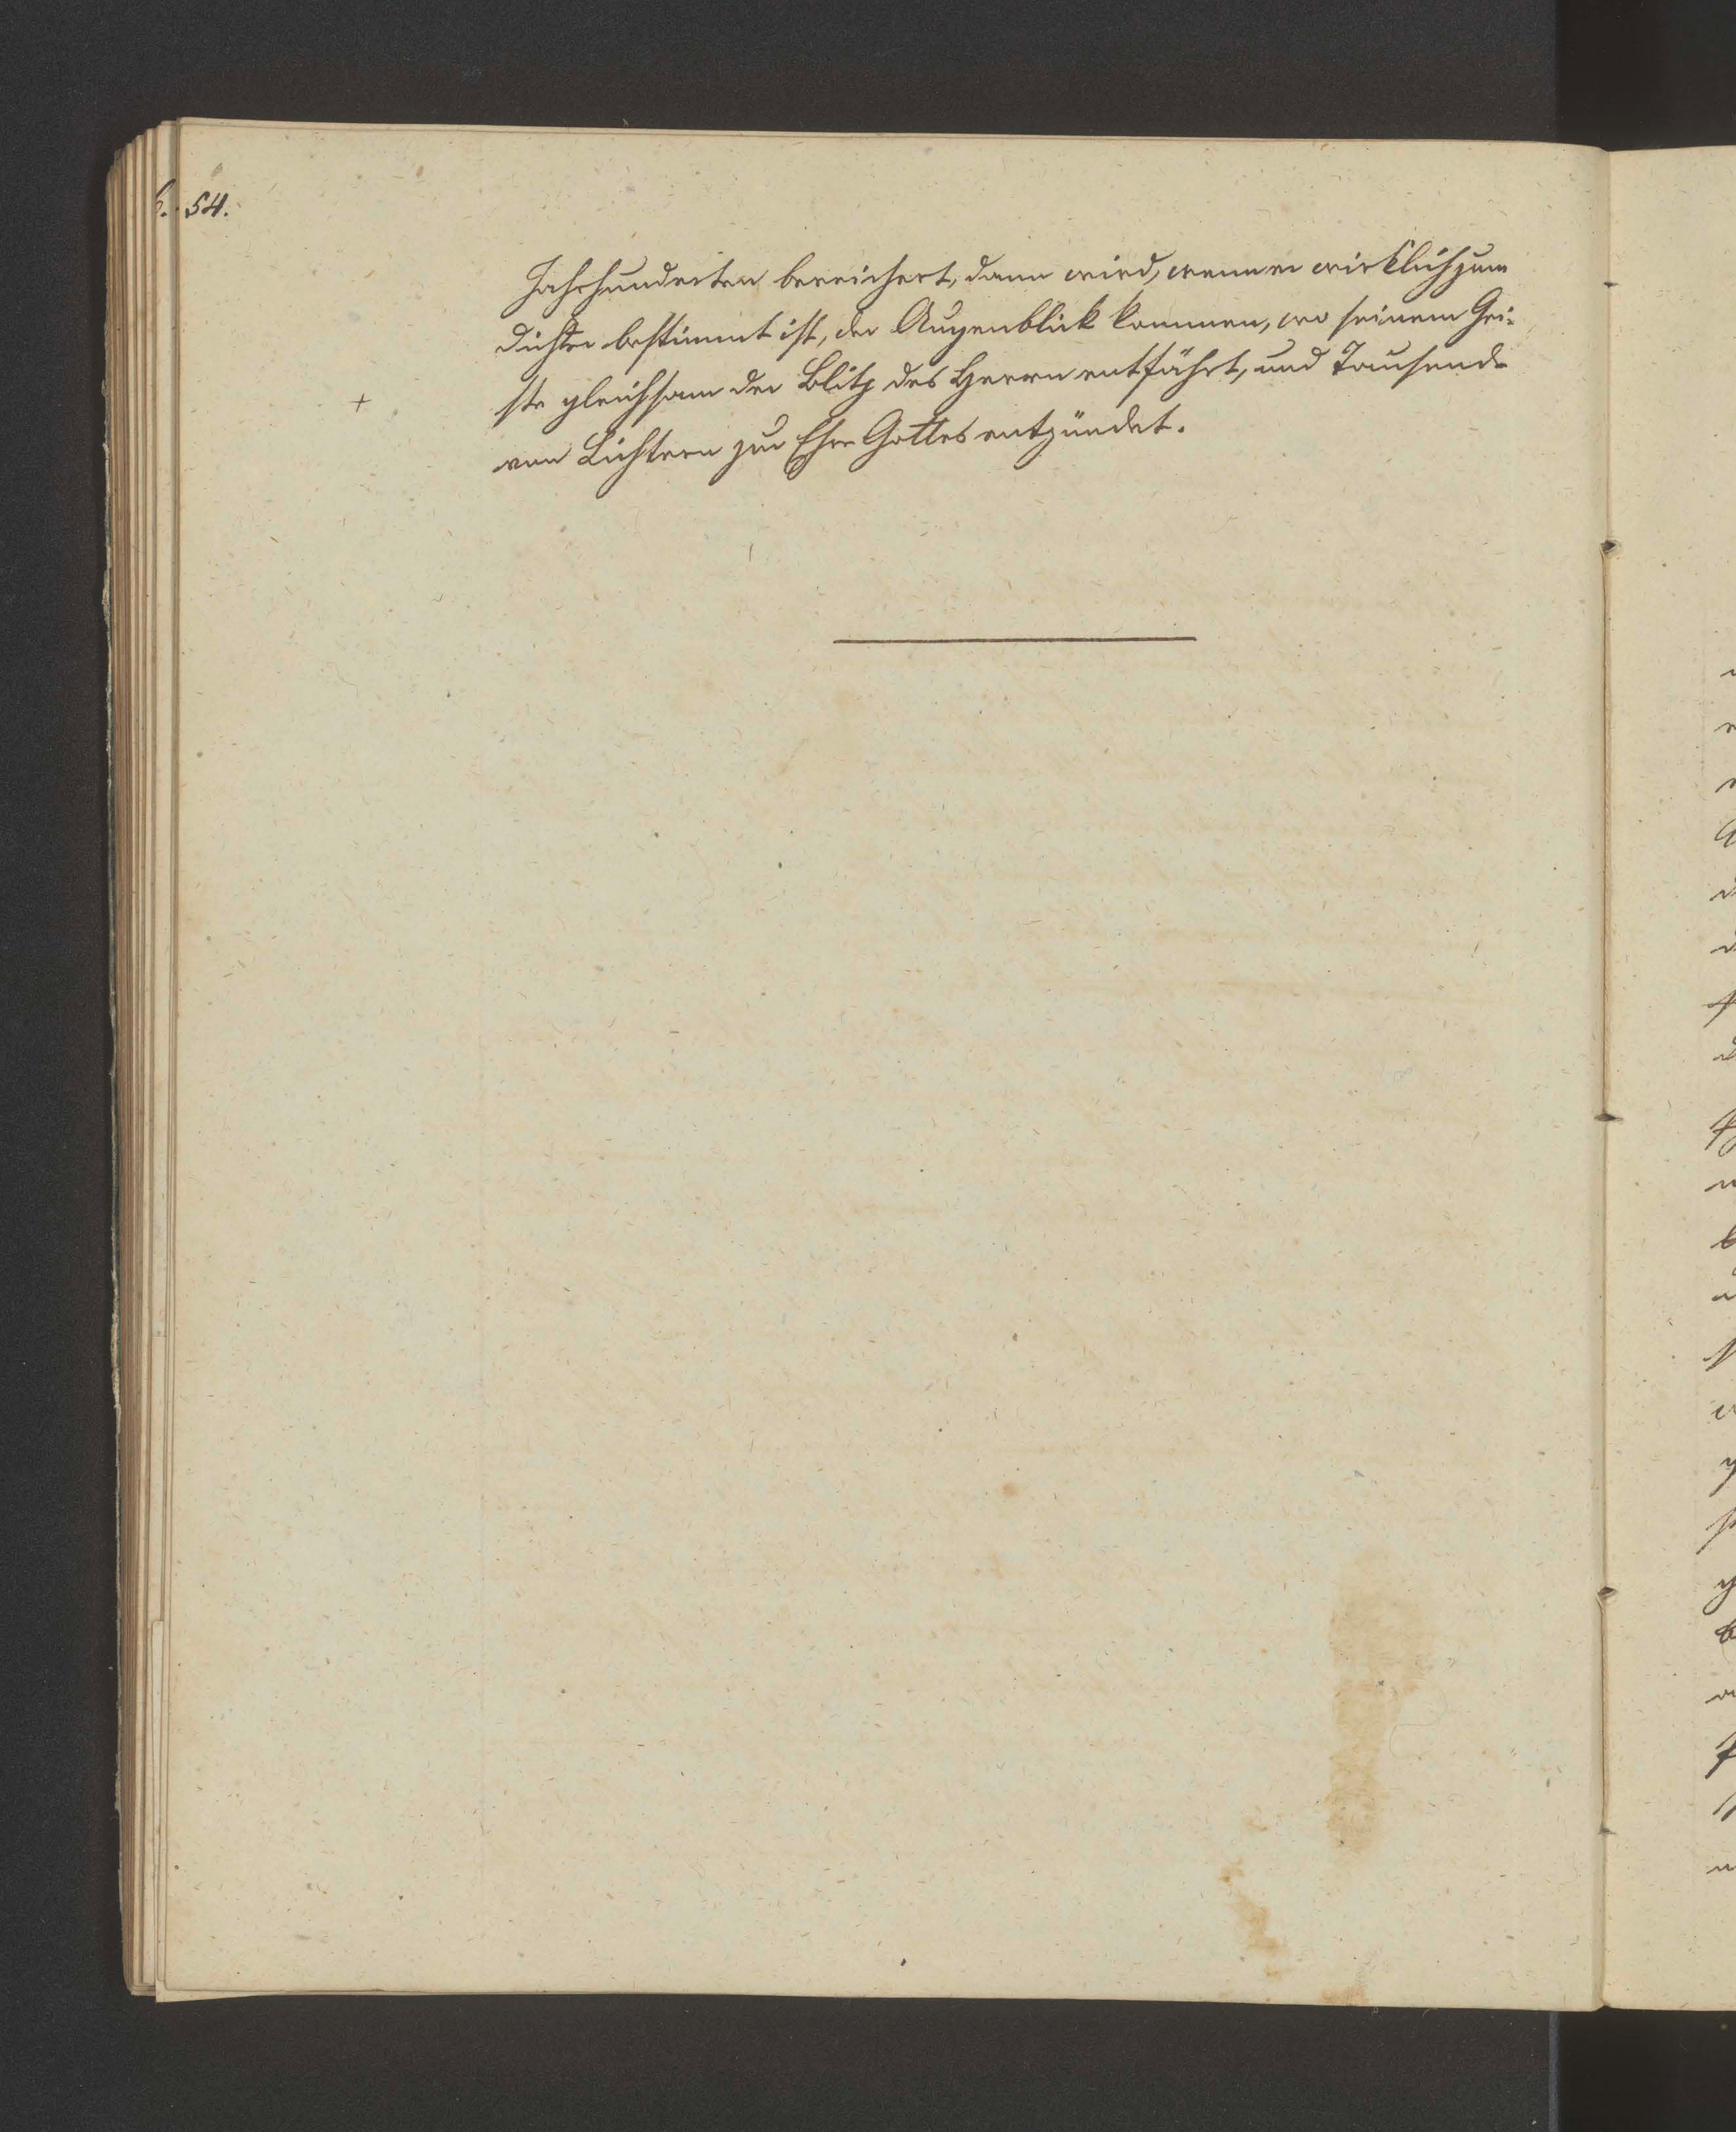 54.
Jahrhunderten bereichert, dann wird, wenn er wirklich zum
Dichter bestimmt ist, der Augenblick kommen, wo seinem Gei-
ste gleichsam der Blitz des Herrn entfährt, und Tausende
+
von Lichtern zur Ehre Gottes entzündet.